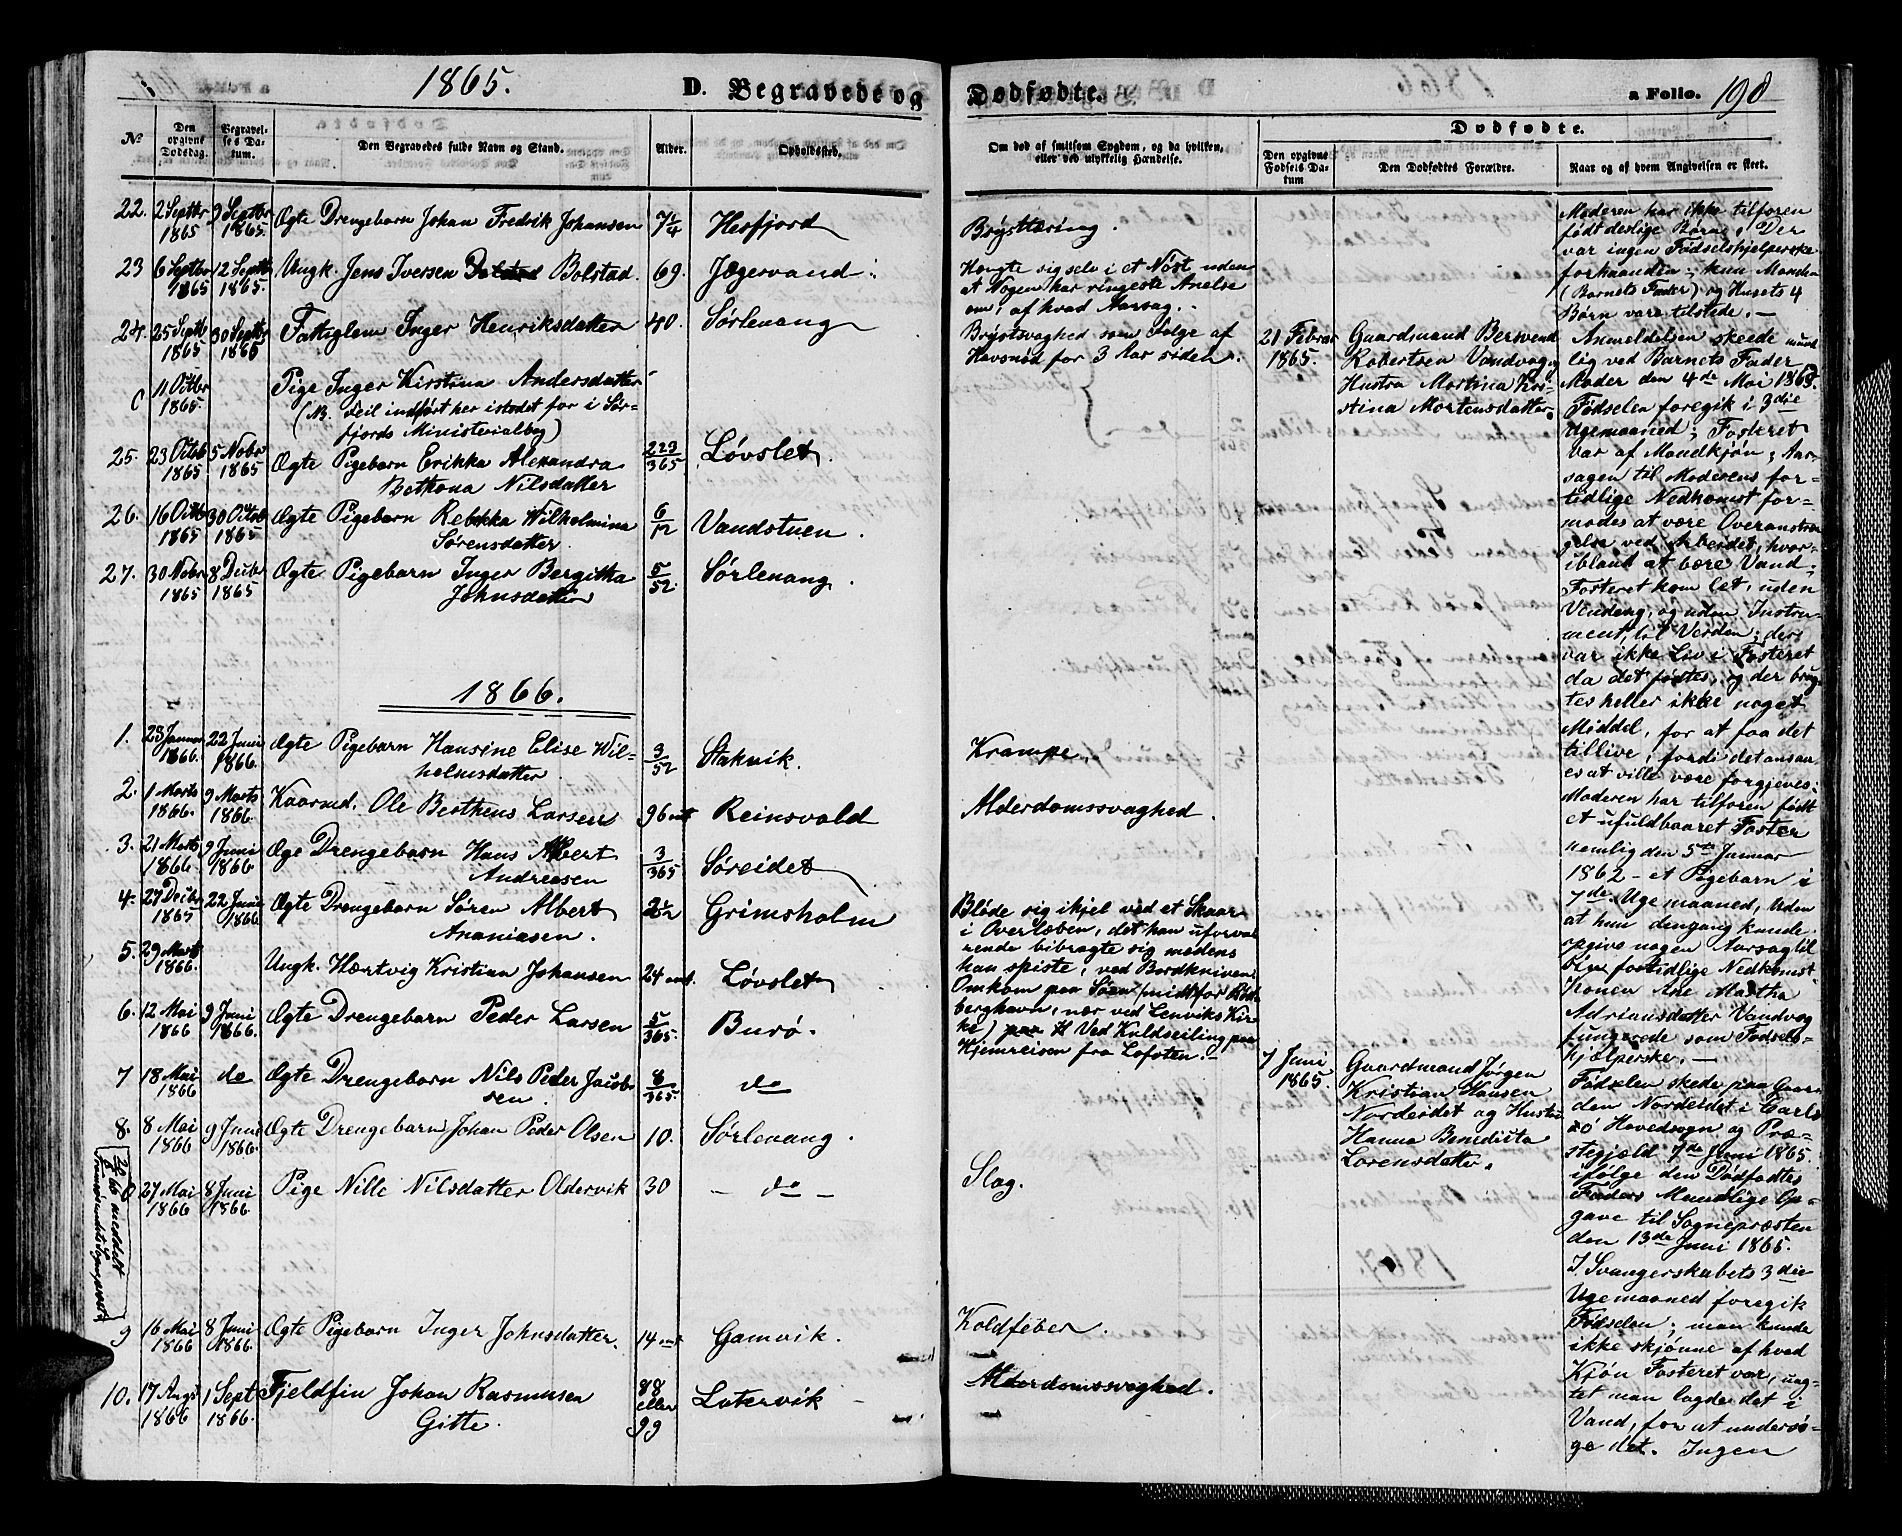 1865.
D. Begravede og
Dødfødte.
a Folio. 198
No
Den opgivne Dødsdag.
Begravelses Datum.
Den Begravedes fulde Navn og Stand.
Alder.
Opholdssted.
Om død af smitsom Sygdom, og da hvilken,
eller ved ulykkelig Hændelse.
Dødfødte.
Den opgivne Fødsels Datum
Den Dødfødtes Forældre.
Naar og af hvem Angivelsen er skeet.
22. 2 Septbr 1865 9 Septbr 1865. Ægte Drengebarn Johan Fredrik Johansen 7 1/4 Hesfjord
Brysttæring.
23 6 Septbr 1865 12 Septb 1865. Ungk. Jens Iversen Bolstad. 69. Jægervand
Hængte sig selv i et Nøst uden
at Nogen har ringeste Anelse
om, af hvad Aarsag.
24. 25 Septb 1865 30 Septbr 1865 Fattiglem Inger Henriksdatter 40. Sørlenang
Brystsvaghed som Følge af
Havsnød for 3 Aar siden.
0 11 Octbr 1865. Pige Inger Kirstina Andersdatter
(NB. Feil indført her istedet for i Sør-
fjords Ministerialbog)
25. 23 Octob 1865 5 Nobr 1865 Ægte Pigebarn Erikka Alexandra
Bethona Nilsdatter 223/365 Løvslet
26. 16 Octbr 1865 30 Octob 1865 Ægte Pigebarn Rebekka Wilhelmina
Sørensdatter 6/12 Vandstuen.
27. 30 Nobr 1865 8 Decbr 1865 Ægte Pigebarn Inger Bergitha
Johnsdatter 5/52 Sørlenang.
1866.
1. 23 Januar 1866. 22 Juni 1866. Ægte Pigebarn Hansine Elise Wil-
helmsdatter 3/52 Stakvik.
Krampe.
2. 1 Marts 1866. 9 Marts 1866. Kaarmd. Ole Berthens Larsen 96 Reinsvold
Alderdomssvaghed.
3. 21 Marts 1866 9 Juni 1866 Æge Drengebarn Hans Albert
Andreasen 3/365 Søreidet
4. 27 Decbr 1865 22 Juni 1866 Ægte Drengebarn Søren Albert
Ananiasen. 2 1/2 Grimsholm
Blødte sig ihjel ved et Skaar
i Overlæben, det han uforva-
rende bibragte sig medens
han spiste, ved Bordkniven.
5. 29 Marts 1866. Ungk. Hartvig Kristian Johansen 24 Løvslet
Omkom paa Søen (midt for
berghavn, nær ved Lenviks Kir-
ke) Ved Kuldseiling paa
Hjemreisen fra Lofoten.
6. 12 Mai 1866 9 Juni 1866. Ægte Drengebarn Peder Larsen 5/365. Burø.
7 18 Mai 1866 do Ægte Drengebarn Nils Peder Jacob-
sen. 8/365 do
8. 8 Mai 1866 9 Juni 1866. Ægte Drengebarn Johan Peder Olsen 10. Sørlenang.
0 27 Mai 1866 8 Juni 1866 Pige Nille Nilsdatter Oldervik 30 – do –
Slag.
meddelt
Tromsø
9 16 Mai 1866 8 Juni 1866. Ægte Pigebarn Inger Johnsdatter. 14 Gamvik.
Koldfeber.
10. 17 Augs 1866 1 Sept 1866. Fjeldfin Johan Rasmusen
Gitte. 88 eller 99 Latervik
Alderdomssvaghed.
21 Februar 1865.
Gaardmand Berwend
Robertsen Vandvaag og
Hustru Martina Kri-
stina Mortensdatter
7 Juni 1865.
Gaardmand Jørgen
Kristian Hansen
Nordeidet og Hustru
Hanna Benedicta
Lorensdatter.
Moderen har ikke tilforen
født deslige Børn. Der
var ingen Fødselshjelperske
forhaanden; kun Manden
(Barnets Fader) og Husets 4
Børn vare tilstede. –
Anmeldelsen skeede mund-
lig ved Barnets Fader
Moder den 4de Mai 1865.
Fødselen foregik i 3die
Ugemaaned; Fosteret
var af Mandkjøn; Aar-
sagen til Moderens for-
tidlige Nedkomst for-
modes at være Overanstræn-
gelse ved Arbeidet, hvor-
iblant at bære Vand;
Fosteret kom let, uden
Vending, og uden Instru-
ment, til Verden; der
var ikke Liv i Fosteret
da det fødtes, og der brug-
tes heller ikke noget
Middel, for at faa det
tillive, fordi det ansaa-
es at ville være forgjeves.
Moderen har tilforen født
et ufuldbaaret Foster
nemlig den 5te Januar
1862 – et Pigebarn i
7de Ugemaaned, Uden
at hun dengang kunde
opgive nogen Aarsag til
sin fortidlige Nedkomst
Konen Ane Martha
Adriansdatter Vandvog
fungerede som Fødsels-
hjælperske. –
Fødselen skede paa Gaar-
den Nordeidet i Carls-
ø Hovedsogn og Præ-
stegjæld 7de Juni 1865
ifølge den Dødfødtes
Faders Mundlige Op-
gave til Sognepræsten
den 13de Juni 1865.
I Svangerskabets 3die
Ugemaaned foregik
Fødselen; man kunde
ikke skjønne af hvad
Kjøn Fosteret var, uag-
tet man lagde det i
Vand, for at undersø-
ge det. Ingen